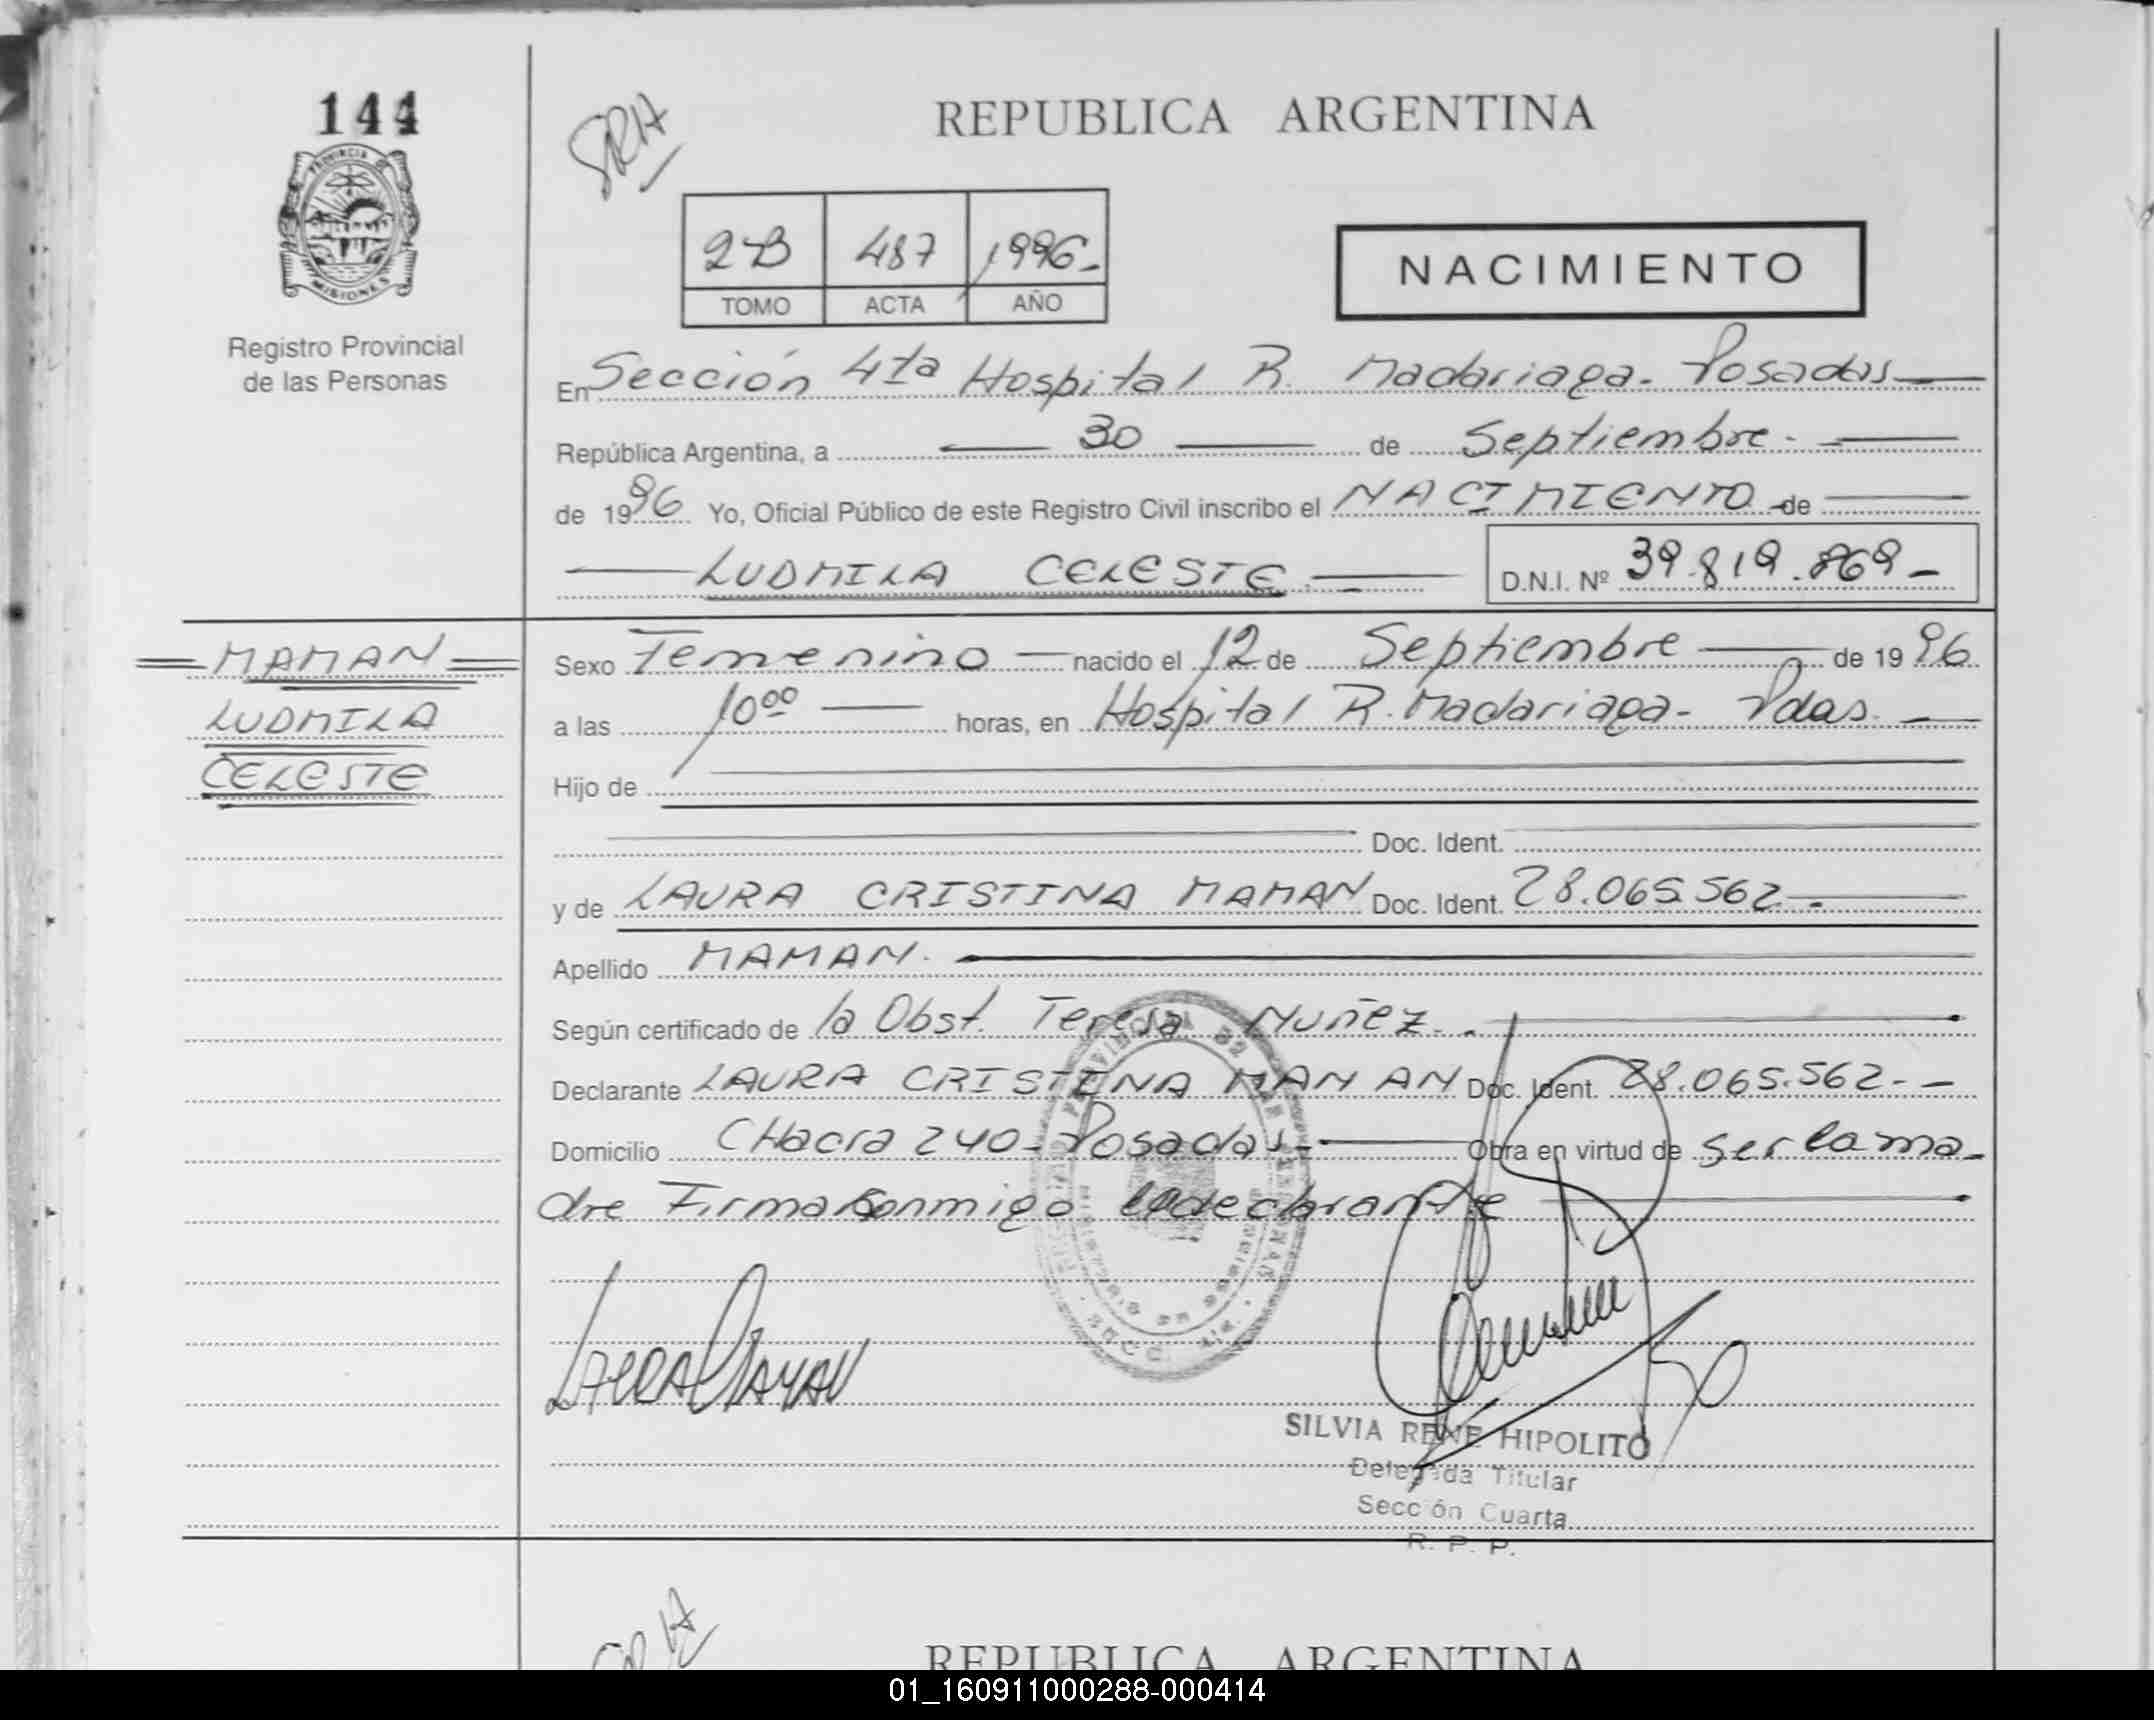 144
SRH
REPUBLICA ARGENTINA
PROVINCIA DE
MISIONES
2-B 487 1996-
TOMO ACTA AÑO
NACIMIENTO
Registro Provincial
de las Personas
En Sección 4ta Hospital R. Madariaga - Posadas
República Argentina, a 30 de Septiembre.
de 1996 Yo, Oficial Público de este Registro Civil inscribo el NACIMIENTO de
LUDMILA CELESTE. D.N.I. Nº 39.819.869-
MAMAN
LUDMILA
CELESTE
Sexo Femenino nacido el 12 de Septiembre de 1996
a las 10 00 horas, en Hospital R. Madariaga - Pdas.
Hijo de
Doc. Ident.
y de LAURA CRISTINA MAMAN Doc. Ident. 28.065.562.-
Apellido MAMAN.
Según certificado de la Obst. Teresa Nuñez.
Declarante LAURA CRISTINA MAMAN Doc. Ident. 28.065.562.-
Domicilio CHacra 240- Posadas- Obra en virtud de ser la ma-
dre Firma Conmigo la declarante
LAURA MAMAN
SILVIA RENE HIPOLITO
Delegada Titular
Sección Cuarta
R. P. P.
REPUBLICA ARGENTINA
01_160911000288-000414